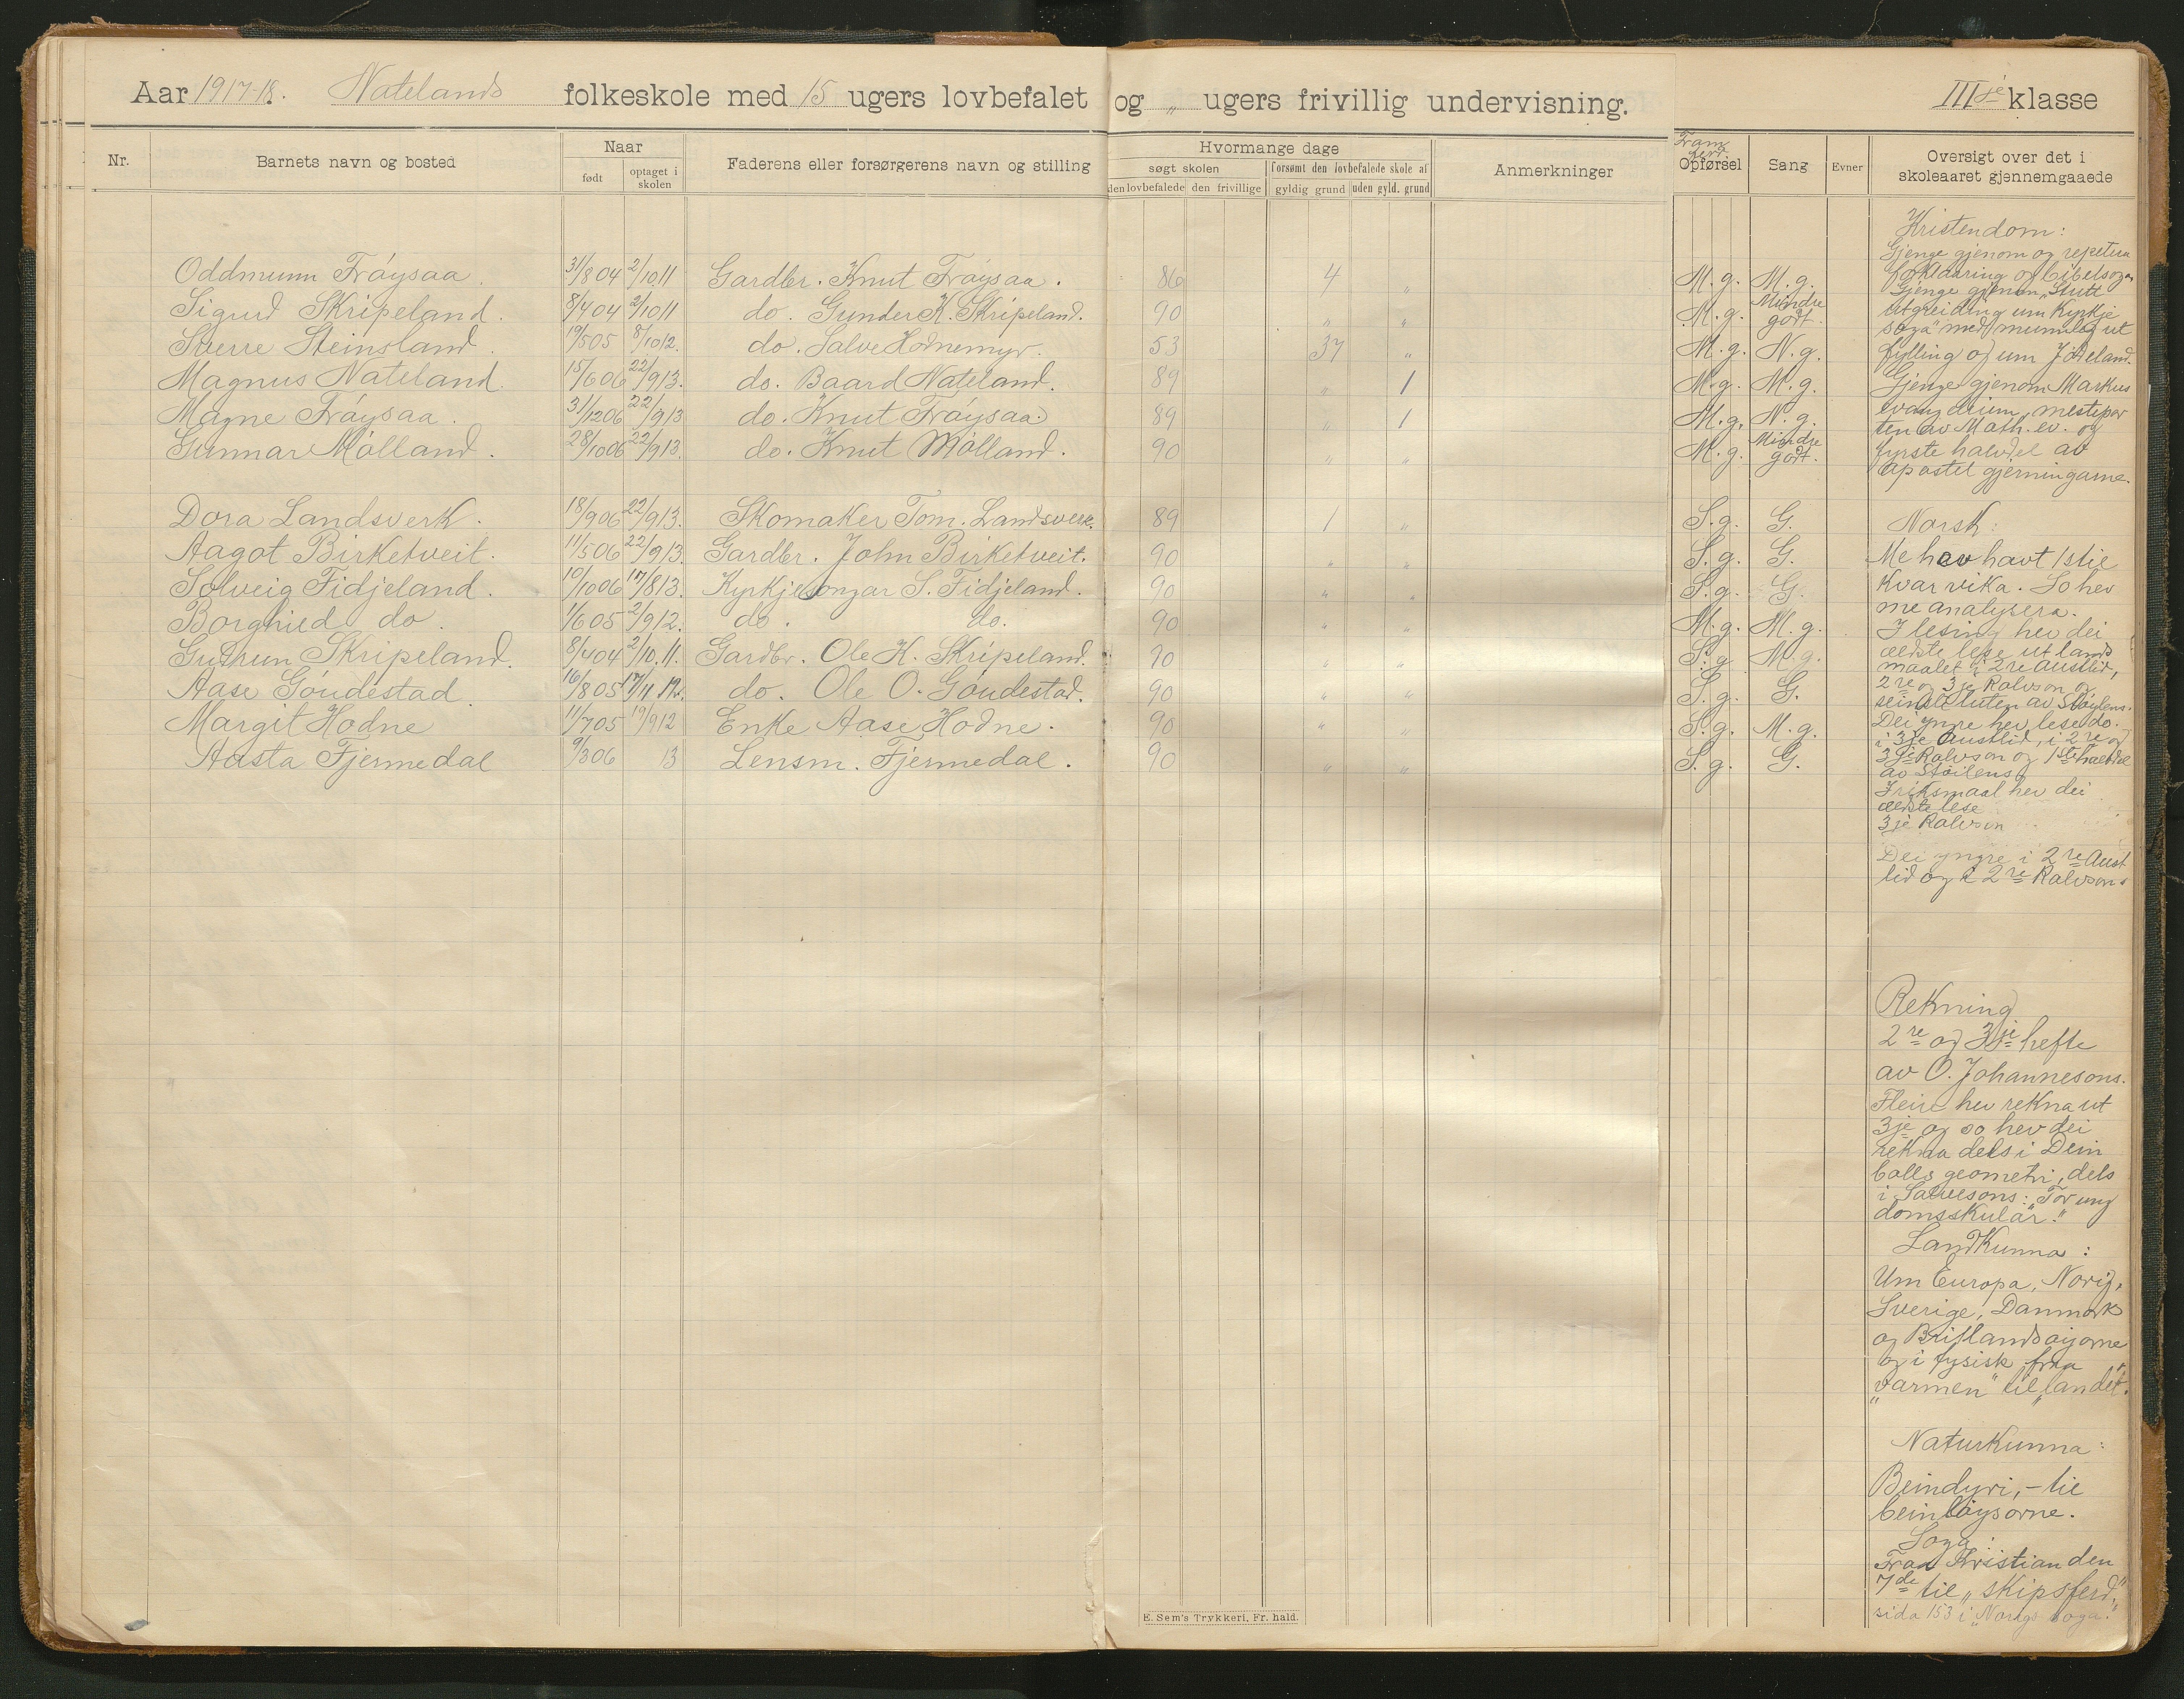 Aar 1917-18. Natelands folkeskole med 15 ugers lovbefalet og „ ugers frivillig undervisning. III je klasse
Nr. Barnets navn og bosted Naar født optaget i skolen Faderens eller forsørgerens navn og stilling Hvormange dage søgt skolen den lovbefalede den frivillige forsømt den lovbefalede skole af gyldig grund uden gyld. grund Anmerkninger Opførsel Sang Evner Oversigt over det i skoleaaret gjennemgaaede
Oddmunn Frøysaa. 31/8 04 2/10.11 Gardbr. Knut Frøysaa. 86 4 „ M.g. M.g.
Sigurd Skripeland. 8/4 04 2/10 11 do. Gunder K. Skripeland. 90 „ „ M.g. Mindre godt.
Sverre Steinsland. 19/5 05 8/10 12. do. Salve Hodnemyr. 53 37 „ M.g. N.g.
Magnus Nateland. 15/6 06 22/9 13. do. Baard Nateland. 89 „ 1 M.g. M.g.
Magne Frøysaa. 31/12 06 22/9 13 do. Knut Frøysaa. 89 „ 1 M.g. N.g.
Gunnar Mølland. 28/10 06 22/9 13. do. Knut Mølland. 90 „ „ M.g. Mindre godt.
Dora Landsverk. 18/9 06 22/9 13. Skomaker Tom. Landsverk. 89 1 „ S.g. G.
Aagot Birketveit. 11/5 06 22/9 13 Gardbr. John Birketveit. 90 „ „ S.g. G.
Solveig Fidjeland. 10/10 06 17/8 13. Kyrkjesongar S. Fidjeland. 90 „ „ S.g. G.
Borghild do. 1/6 05 2/9 12. do. do. 90 „ „ M.g. M.g.
Gudrun Skripeland. 8/4 04 2/10.11. Gardbr. Ole K. Skripeland. 90 „ „ S.g M.g.
Aase Gøudestad. 16/8 05 17/11 12. do. Ole O. Gøudestad. 90 „ „ S.g. G.
Margit Hodne 11/7 05 19/9 12 Enke Aase Hodne. 90 „ „ S.g. M.g.
Aasta Fjermedal 9/3 06 13 Lensm. Fjermedal. 90 „ „ S.g. G.
Kristendom:
Gjenge gjenom og repetera
forklaaring og bibelsoga
Gjenge gjenom „Stutt
utgreiding um Kyrkje
soga" med munnleg ut
fylling og um Jødeland.
Gjenge gjenom Markus
evangelium, mestepar
ten av Math. ev. og
fyrste halvdel av
apostel gjerningarne.
Norsk:
Me hev havt 1 stil
kvar vika. So hev
me analysera.
I lesing hev dei
eldste lese ut lands
maalet i 2re Austlid,
2re og 3je Rolvson og
seinste luten av Støylens.
Dei yngre hev lese do.
i 3je Austlid, i 2re og
3je Rolvson og 1ste halvdel
av Støilens
I riksmaal hev dei
eldste lese
3je Rolvson
Dei yngre i 2re Aust
lid og i 2re Rolvsons
Rekning
2re og 3je hefte
av O. Johannesons.
Fleire hev rekna ut
3je og so hev dei
rekna dels i Dein
bolls geometri, dels
i Salvesons: „For ung
domsskular."
Landkunna:
Um Europa, Norig,
Sverige, Danmark
og Britlandsøyorne
og i fysisk fraa
„varmen" til „landet".
Naturkunna:
Beindyri, - til
beinløysorne.
Soga:
Fraa Kristian den
7de til „skipsferd",
sida 153 i „Norigs soga."
E. Sem's Trykkeri, Fr. hald.